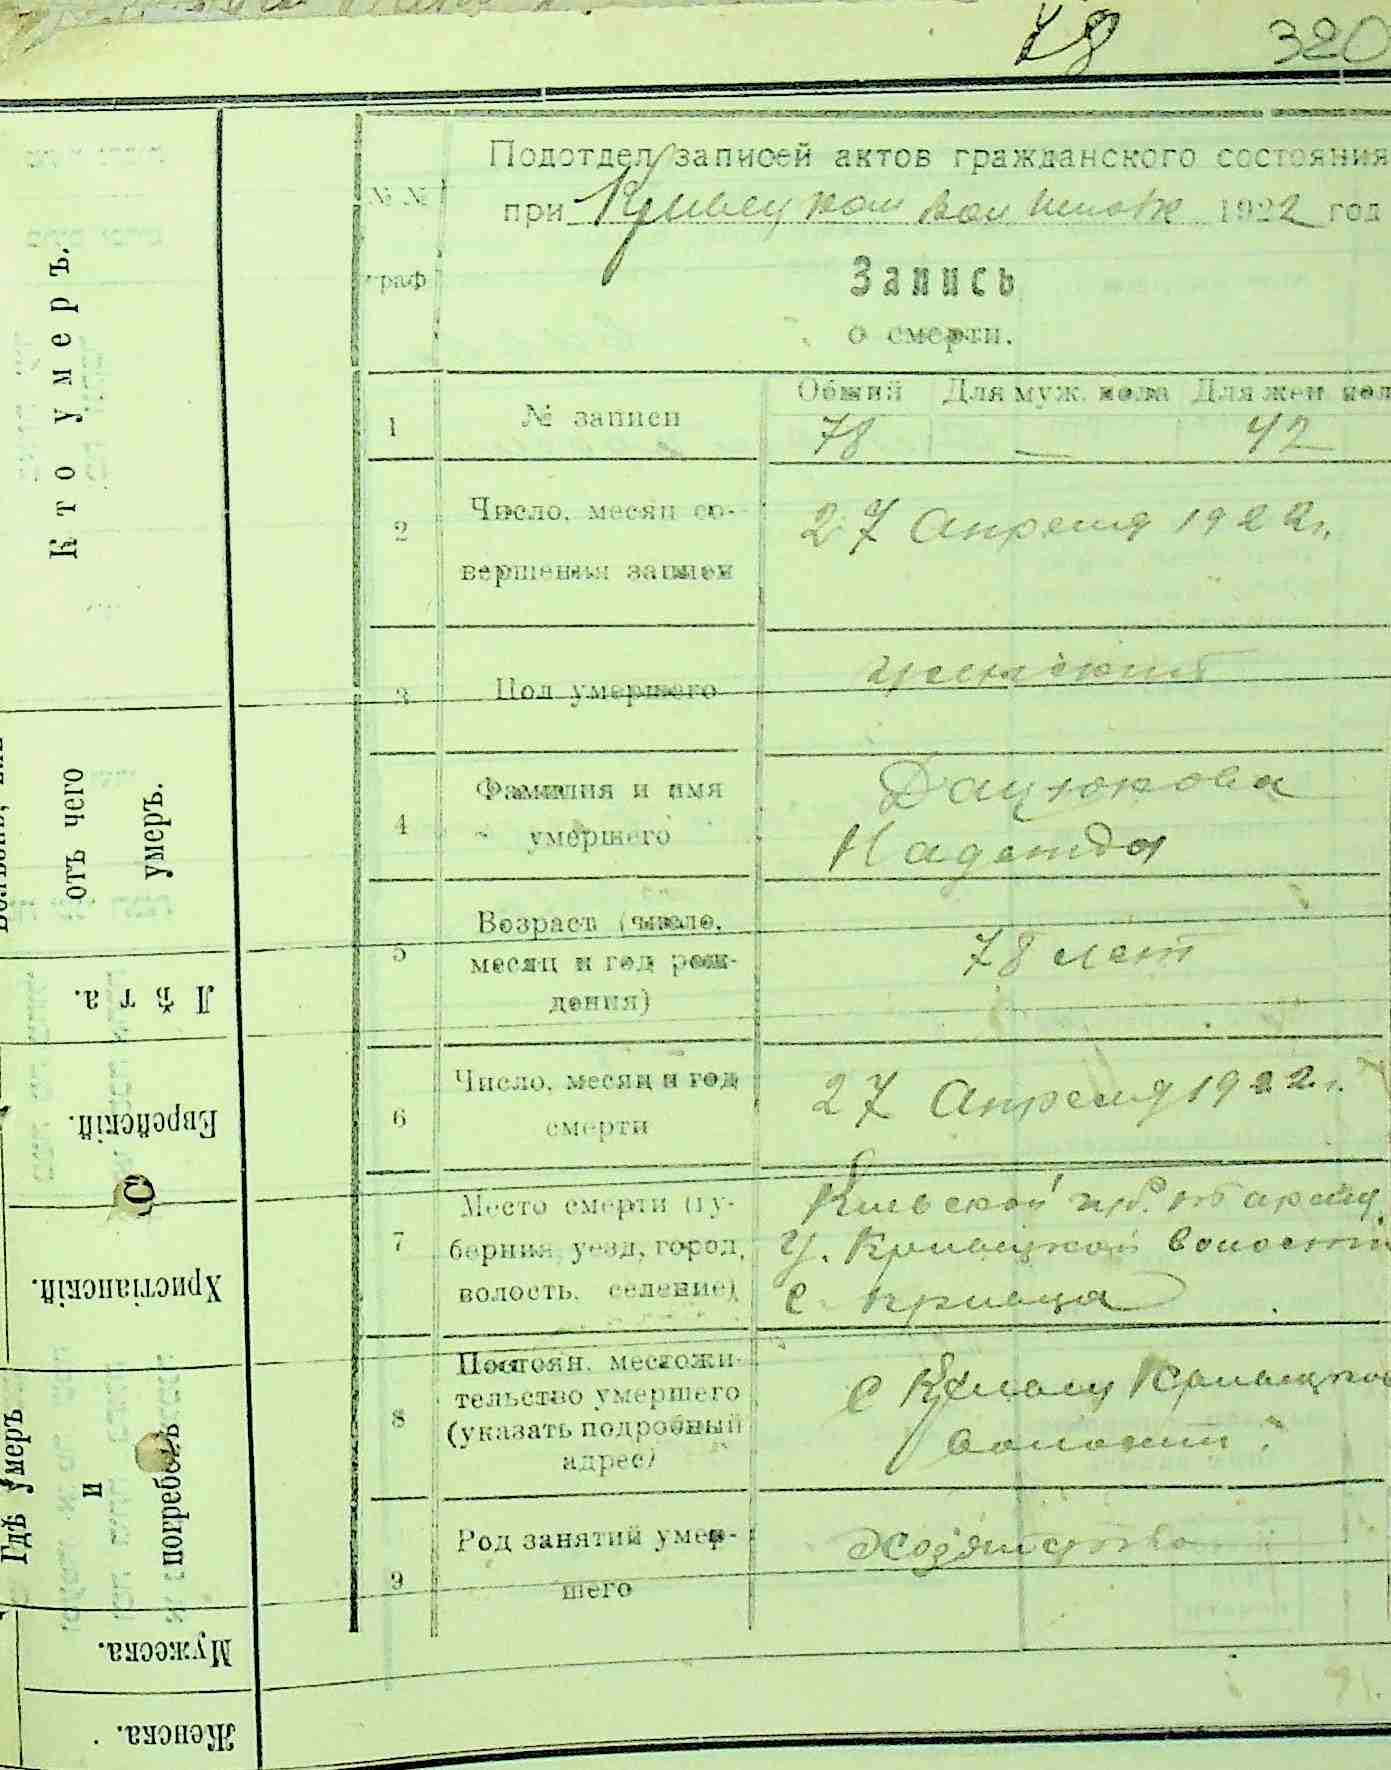 78 320
Подотдел записей актов гражданского состояния
при Кривецком вол 1922 год
№ №
граф
Запись
о смерти.
Общий Для муж. пола Для жен пол
1 № записи 78 — 42
2 Число, месяц со-
вершения записи
27 Апреля 1922 г.
3 Пол умершего женский
4 Фамилия и имя
умершего
Дацюкова
Надежда
5 Возраст (число,
месяц и год рож-
дения)
78 лет
6 Число, месяц и год
смерти
27 Апреля 1922 г.
7 Место смерти (гу-
берния, уезд, город,
волость, селение)
Киевской губ.
у. Кривецкой волости
с Кривца
8 Постоян. местожи-
тельство умершего
(указать подробный
адрес)
с Кривец Кривецкой
волости
9 Род занятий умер-
шего
Хозяйство
Кто умеръ.
отъ чего
умеръ.
Лѣта.
Еврейскій.
Христіанскій.
Гдѣ умеръ
и
погребенъ
Мужеска.
Женска.